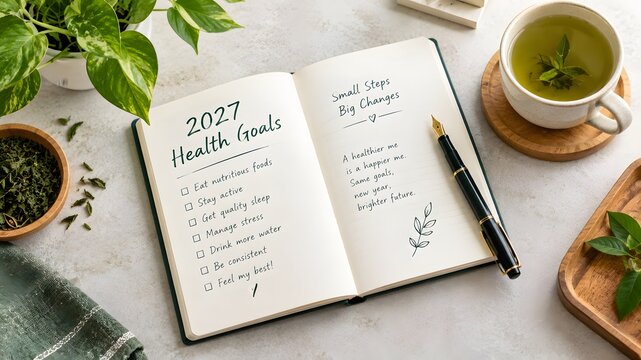 2027
Health Goals
Eat nutritious foods
Stay active
Get quality sleep
Manage stress
Drink more water
Be consistent
Feel my best!
Small Steps
Big Changes
A healthier me
is a happier me.
Same goals,
new year,
brighter future.